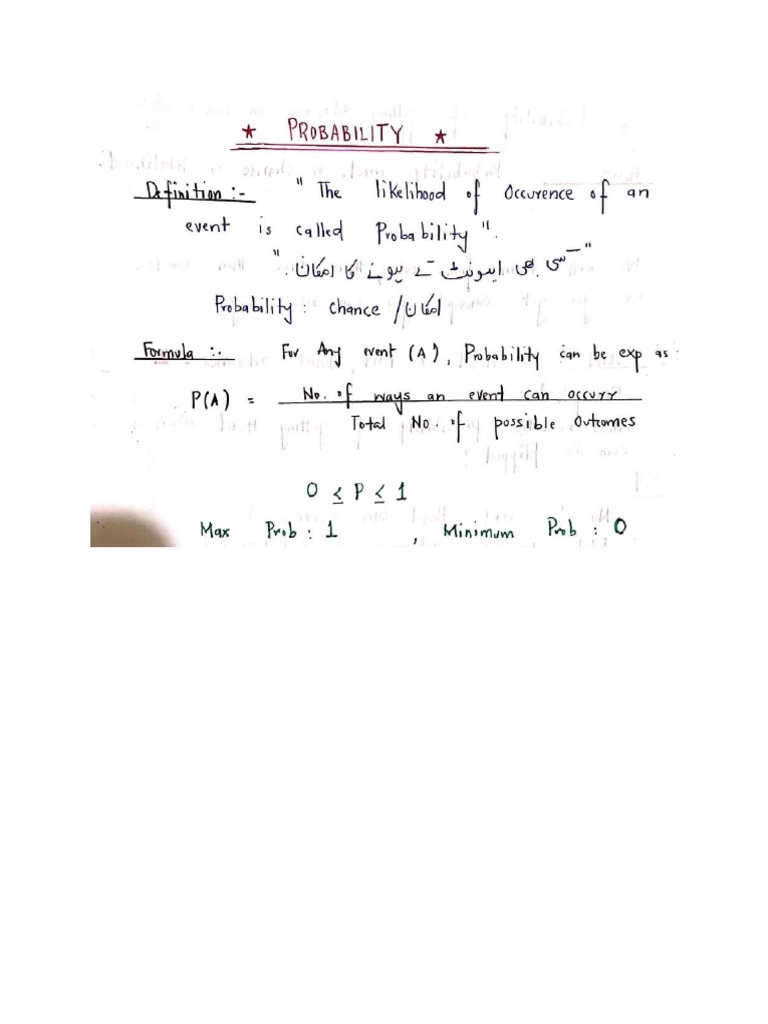 * PROBABILITY *
Definition :- " The likelihood of Occurence of an
event is called Probability ".
" کسی بھی ایونٹ کے ہونے کا امکان. "
Probability : chance / امکان
Formula :- For Any event (A), Probability can be exp as :
P(A) = No. of ways an event can occurr
Total No. of possible Outcomes
0 ≤ P ≤ 1
Max Prob : 1 , Minimum Prob : 0